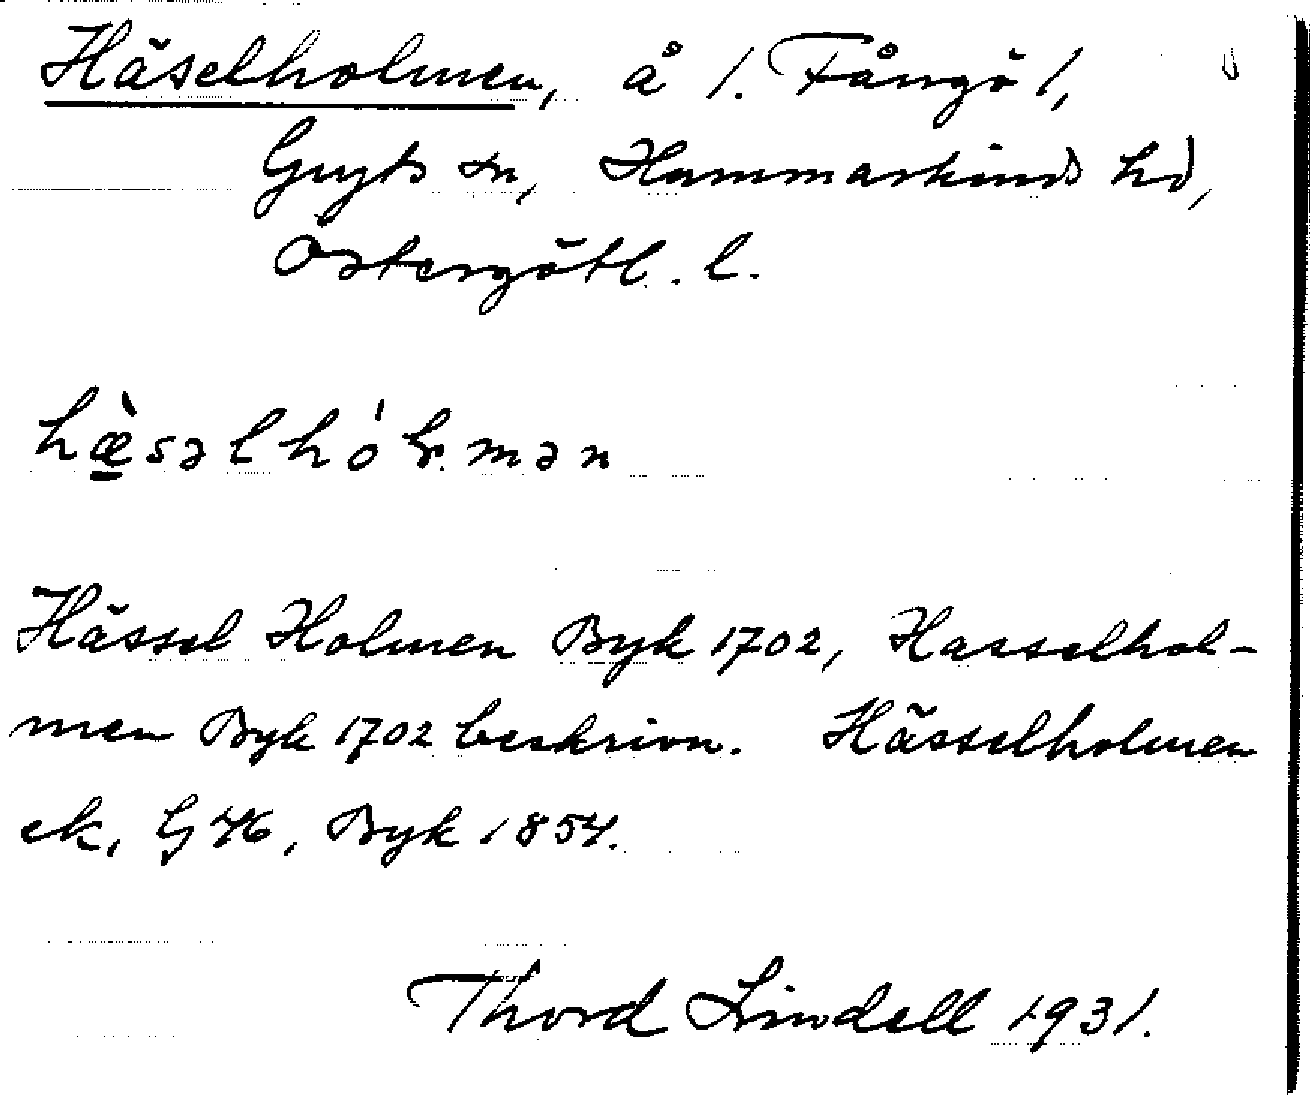 Häselholmen, å 1. Fångö 1,
Gryts sn, Hammarkinds hd,
Östergötl. l.
hæ̀səlhóɬ.mən
Hässel Holmen Byk 1702, Hasselhol-
men Byk 1702 beskrivn. Hässelholmen
ek, G 46, Byk 1854.
Thord Lindell 1931.